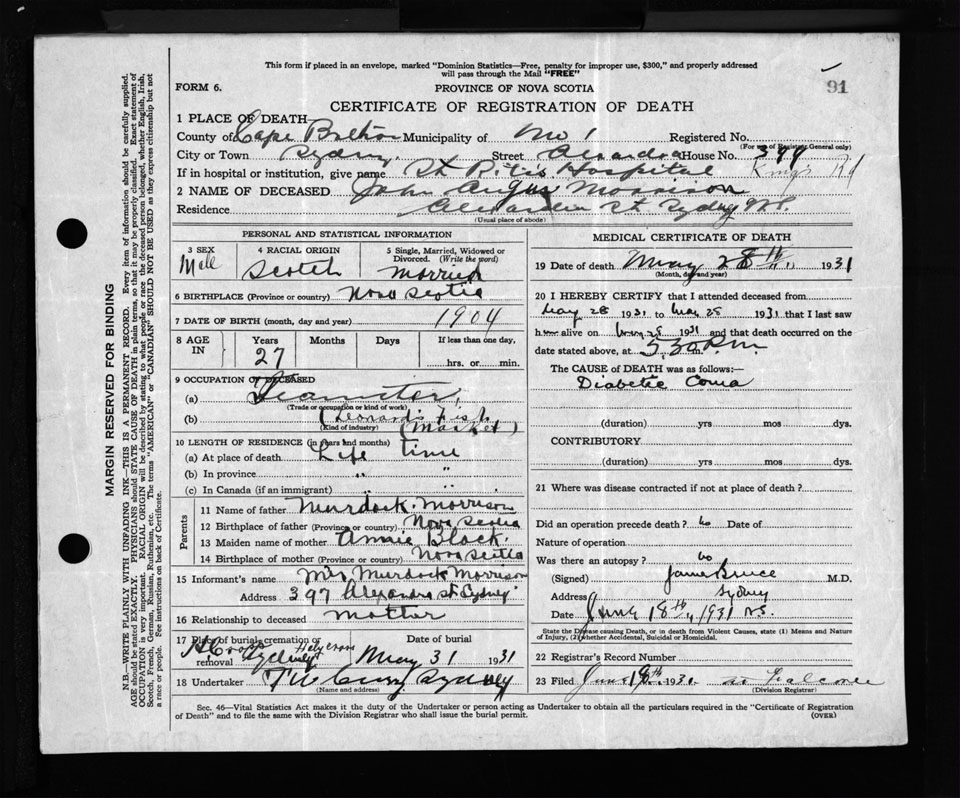 This form if placed in an envelope, marked "Dominion Statistics—Free, penalty for improper use, $300," and properly addressed
will pass through the Mail "FREE"
91
FORM 6.
PROVINCE OF NOVA SCOTIA
CERTIFICATE OF REGISTRATION OF DEATH
1 PLACE OF DEATH
County of Cape Breton Municipality of No 1 Registered No.
(For use of Registrar General only)
City or Town Sydney. Street Alexandra House No. 399
If in hospital or institution, give name St Rita's Hospital King's Rd
2 NAME OF DECEASED John Angus Morrison
Residence Alexandra St Sydney N.S.
(Usual place of abode)
PERSONAL AND STATISTICAL INFORMATION
3 SEX 4 RACIAL ORIGIN 5 Single, Married, Widowed or
Divorced. (Write the word)
Male Scotch Married
6 BIRTHPLACE (Province or country) Nova Scotia
7 DATE OF BIRTH (month, day and year) 1904
8 AGE IN Years Months Days If less than one day,
27 hrs. or min.
9 OCCUPATION OF DECEASED
(a) Teamster,
(Trade or occupation or kind of work)
(b) (Leonard's Fish
(Kind of industry) (Market)
10 LENGTH OF RESIDENCE (in years and months)
(a) At place of death Life Time
(b) In province " "
(c) In Canada (if an immigrant) " "
Parents
11 Name of father Murdock. Morrison
12 Birthplace of father (Province or country) Nova Scotia
13 Maiden name of mother Annie Black.
14 Birthplace of mother (Province or country) Nova Scotia
15 Informant's name Mrs Murdock Morrison
Address 397 Alexandra St Sydney
16 Relationship to deceased mother
17 Place of burial, cremation or Date of burial
removal Holy Cross Sydney May 31 1931
18 Undertaker Sydney
(Name and address)
MEDICAL CERTIFICATE OF DEATH
19 Date of death May 28th 1931
(Month, day and year)
20 I HEREBY CERTIFY that I attended deceased from
May 28 1931 to May 28 1931 that I last saw
h alive on May 28 1931 and that death occurred on the
date stated above, at 5.30 P.m.
The CAUSE of DEATH was as follows:—
Diabetic Coma
(duration) yrs mos dys.
CONTRIBUTORY
(duration) yrs mos dys.
21 Where was disease contracted if not at place of death?
Did an operation precede death? No Date of
Nature of operation
Was there an autopsy? No
(Signed) James Bruce M.D.
Address Sydney
Date June 18th, 1931 N.S.
State the Disease causing Death, or in death from Violent Causes, state (1) Means and Nature
of Injury, (2) whether Accidental, Suicidal or Homicidal.
22 Registrar's Record Number
23 Filed June 19 1931.
(Division Registrar)
Sec. 46—Vital Statistics Act makes it the duty of the Undertaker or person acting as Undertaker to obtain all the particulars required in the "Certificate of Registration
of Death" and to file the same with the Division Registrar who shall issue the burial permit.
(OVER)
MARGIN RESERVED FOR BINDING
N.B.—WRITE PLAINLY WITH UNFADING INK—THIS IS A PERMANENT RECORD. Every item of information should be carefully supplied.
AGE should be stated EXACTLY. PHYSICIANS should STATE CAUSE OF DEATH in plain terms, so that it may be properly classified. Exact statement of
OCCUPATION is very important. RACIAL ORIGIN will be described by stating to what people or race the deceased person belonged, whether English, Irish,
Scotch, French, German, Russian, Ruthenian, etc. The terms "AMERICAN" or "CANADIAN" SHOULD NOT BE USED as they express citizenship but not
a race or people. See instructions on back of Certificate.